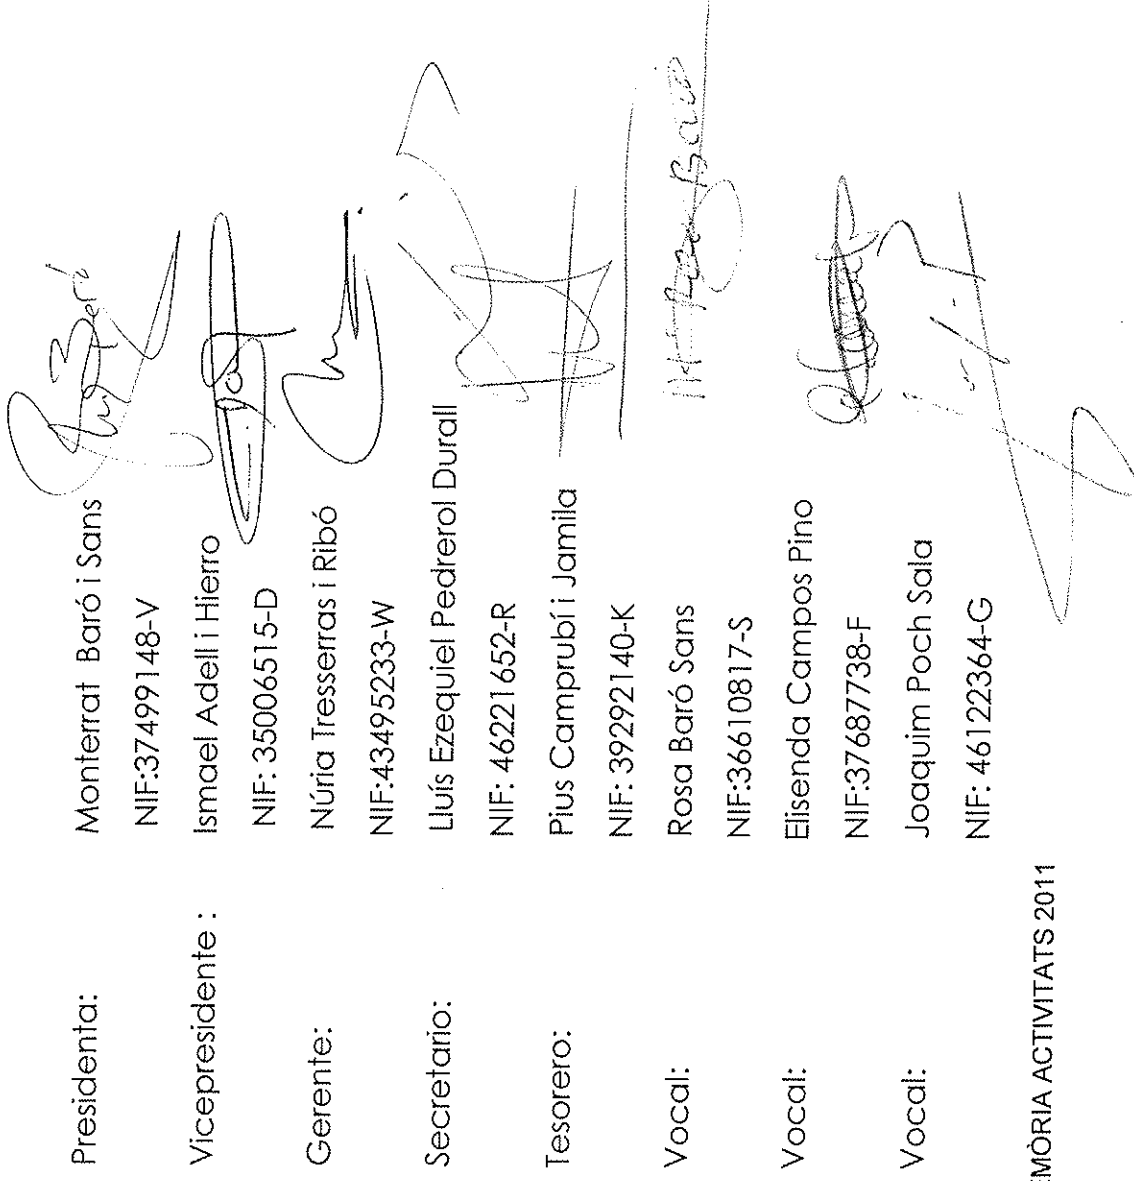 Presidenta: Monterrat Baró i Sans
NIF:37499148-V
Vicepresidente : Ismael Adell i Hierro
NIF: 35006515-D
Gerente: Núria Tresserras i Ribó
NIF:43495233-W
Secretario: Lluís Ezequiel Pedrerol Durall
NIF: 46221652-R
Tesorero: Pius Camprubí i Jamila
NIF: 39292140-K
Vocal: Rosa Baró Sans
NIF:36610817-S
Vocal: Elisenda Campos Pino
NIF:37687738-F
Vocal: Joaquim Poch Sala
NIF: 46122364-G
EMÒRIA ACTIVITATS 2011